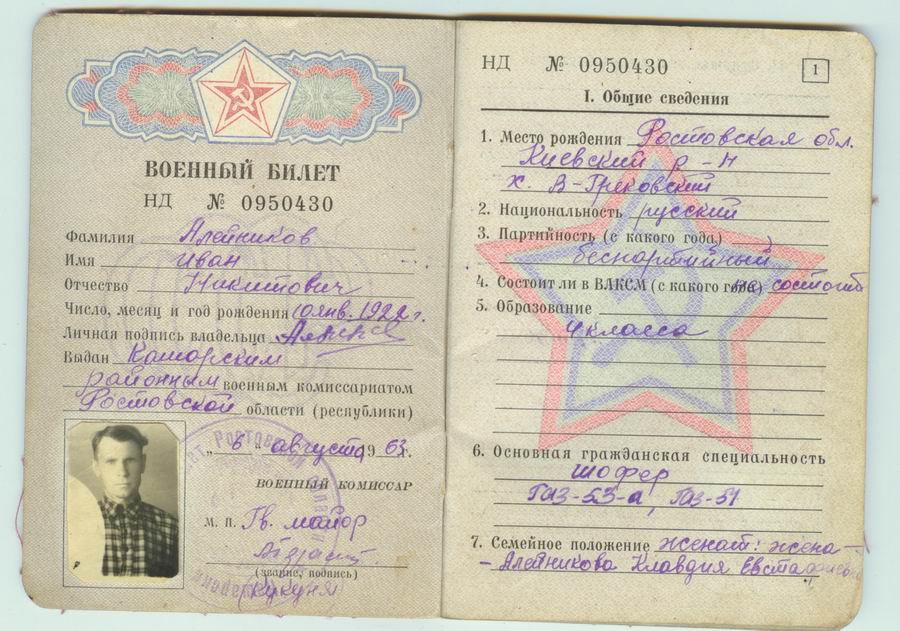 ВОЕННЫЙ БИЛЕТ
НД № 0950430
Фамилия Алейников
Имя Иван
Отчество Никитович
Число, месяц и год рождения 10 янв. 1922 г.
Личная подпись владельца
Выдан Кашарским
районным военным комиссариатом
Ростовской области (республики)
„ 6 “ августа 1963 г.
ВОЕННЫЙ КОМИССАР
М. П. Гв. майор
(звание, подпись)
(Кукуня)
НД № 0950430
1
I. Общие сведения
1. Место рождения Ростовская обл.
Киевский р-н
х. В-Грековский
2. Национальность русский
3. Партийность (с какого года)
беспартийный
4. Состоит ли в ВЛКСМ (с какого года) не состоит
5. Образование
4 класса
6. Основная гражданская специальность
шофер
ГАЗ-53-а, ГАЗ-51
7. Семейное положение женат: жена -
- Алейникова Клавдия